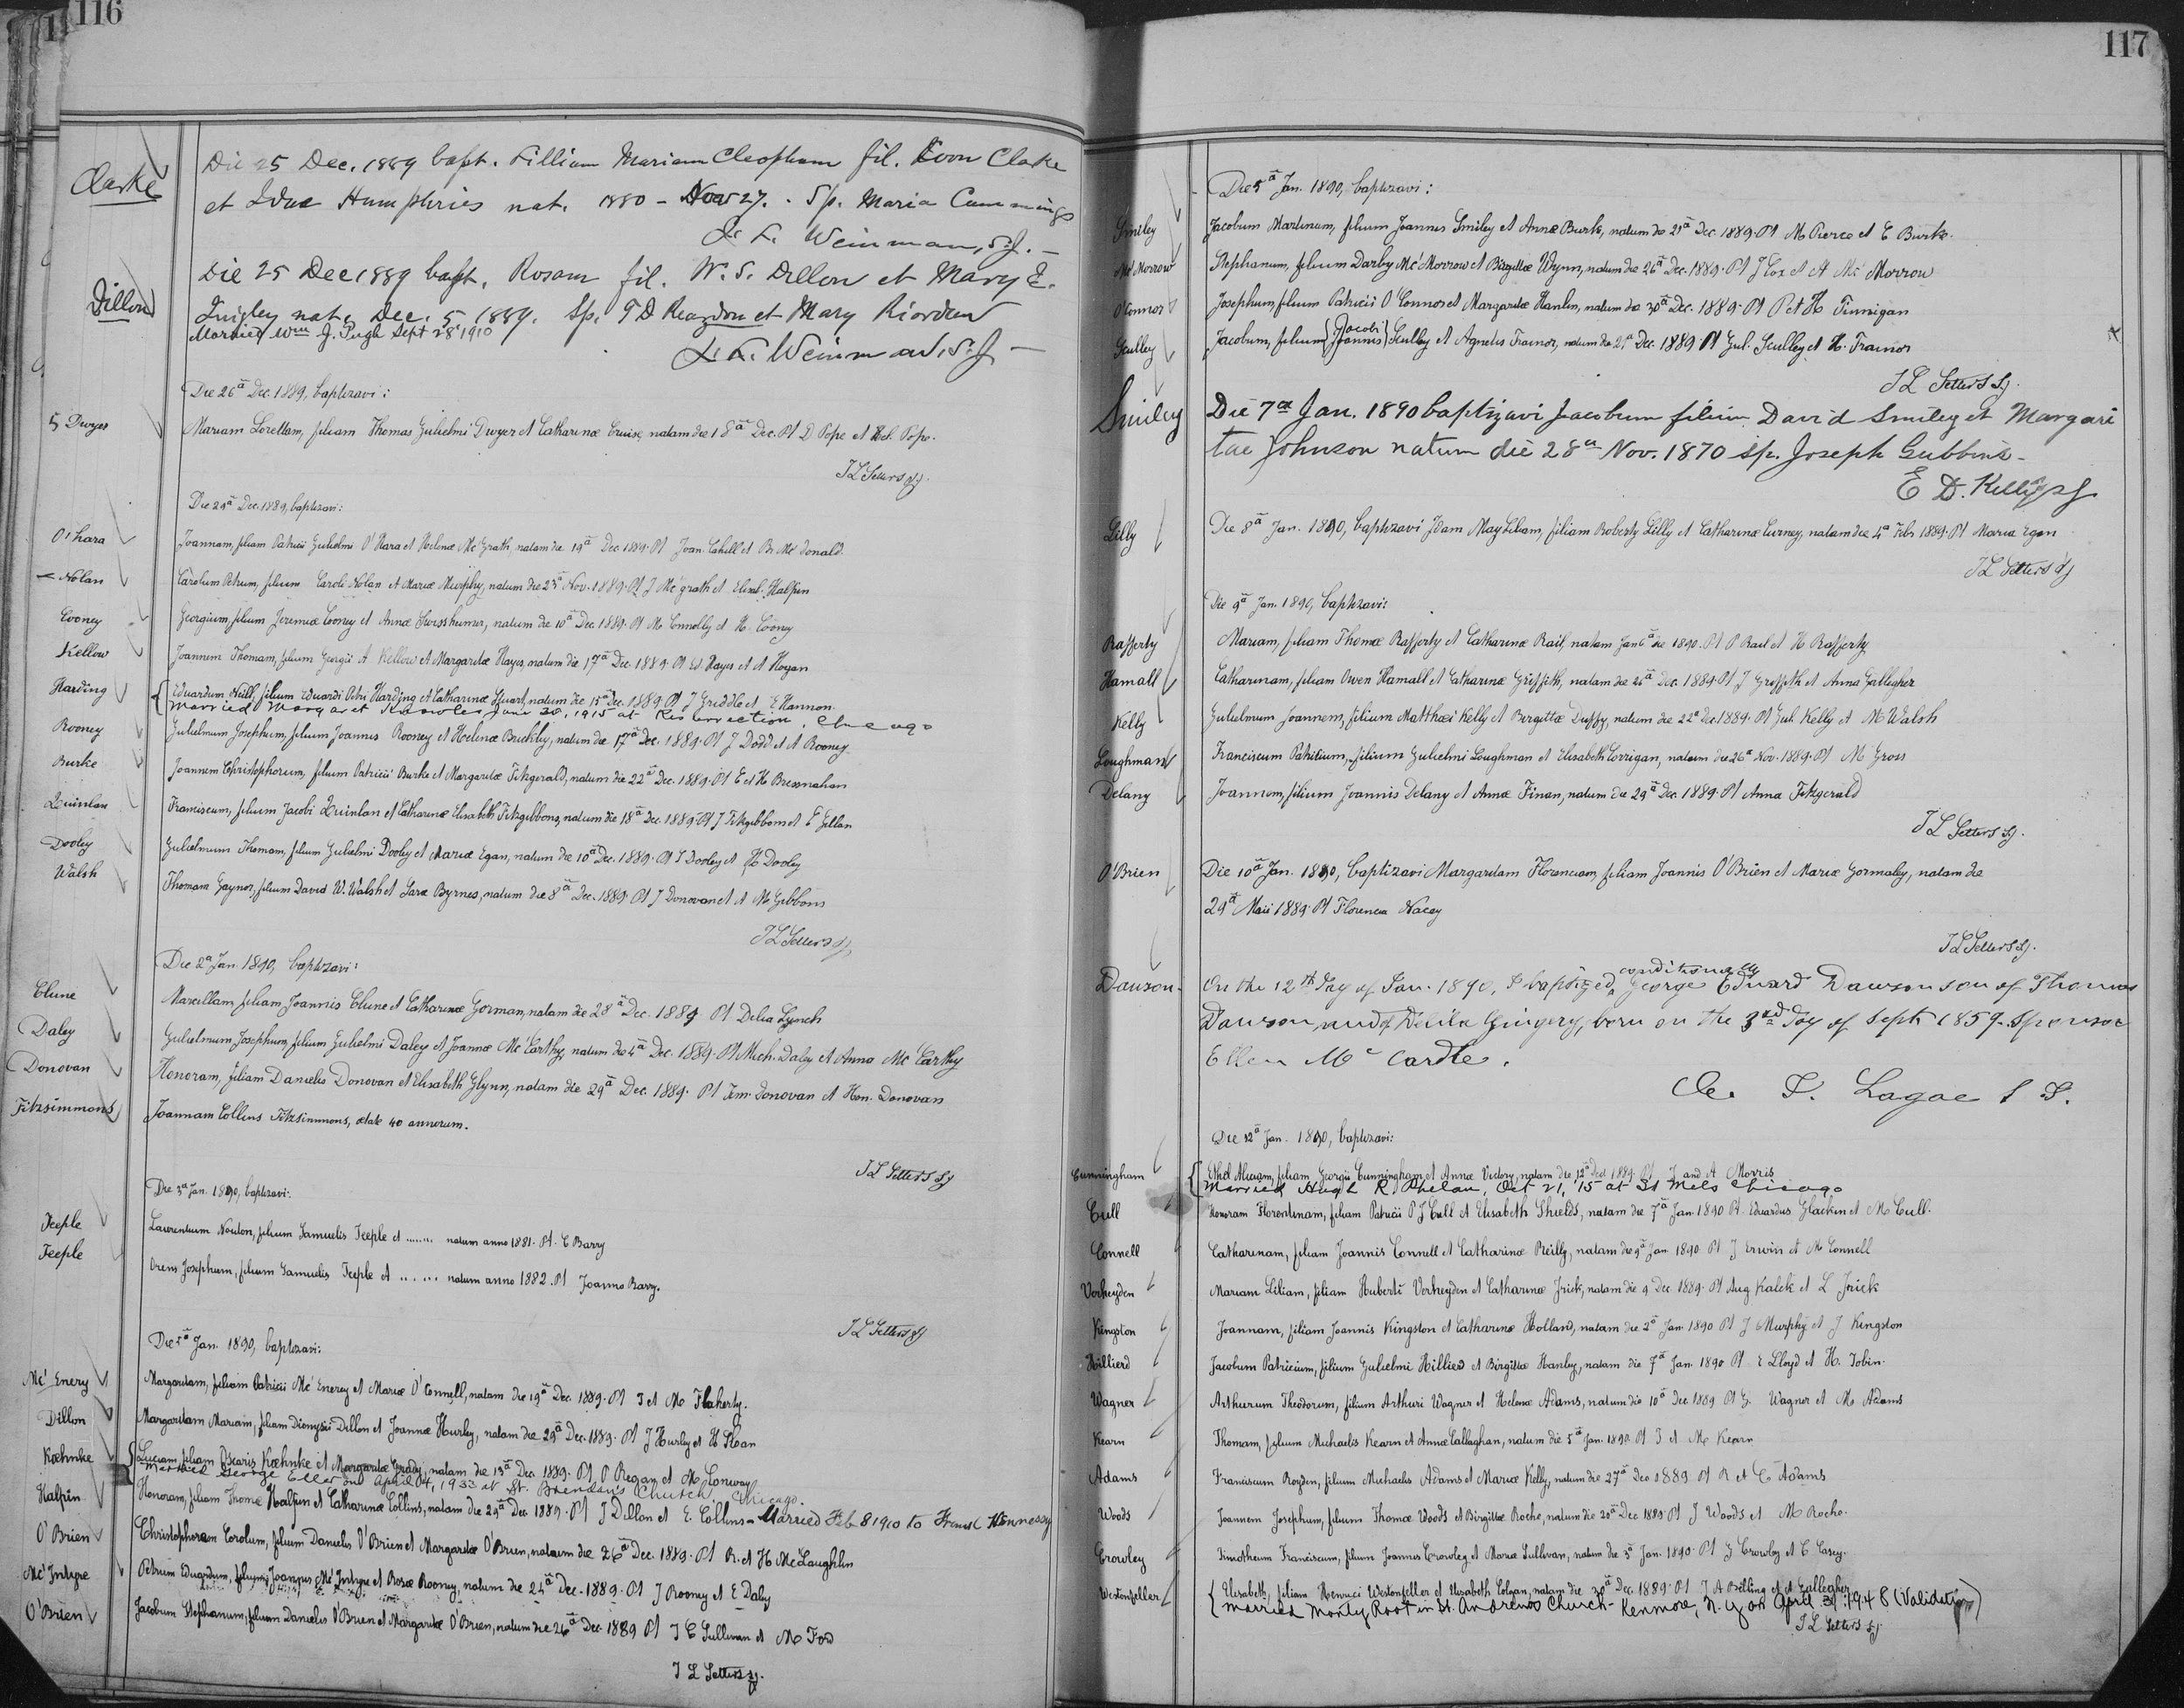 116
Clarke
Die 25 Dec. 1889 bapt. Lilliam Mariam Cleopham fil. Leon Clarke
et Idae Humphries nat. 1880 - Nov 27. - Sp. Maria Cummings
L. L. Weinman, S.J. -
Dillon
Die 25 Dec 1889 bapt. Rosam fil. W. S. Dillon et Mary E.
Quigley nat. Dec. 5 1889. Sp. T D Reardon et Mary Riordan
Married Wm J. Pugh Sept 28 1910
L. L. Weinman, S.J. -
Die 26ª Dec. 1889, baptizavi:
Dwyer
Mariam Lorettam, filiam Thomas Gulielmi Dwyer et Catharinæ Cruise, natam die 18ª Dec. Pt D Pope et Hel. Pope.
T L Setters SJ.
Die 29ª Dec. 1889, baptizavi:
O'hara
Joannam, filiam Patricii Gulielmi O'Hara et Helenæ McGrath, natam die 19ª Dec 1889. Pt Joan. Cahill et B. McDonald.
Nolan
Carolum Petrum, filium Caroli Nolan et Mariæ Murphy, natum die 23ª Nov. 1889. Pt J McGrath et Elisab. Halpin
Cooney
Georgium, filium Jeremiæ Cooney et Annæ Swisshelmer, natum die 10ª Dec. 1889. Pt M Connolly et H. Cooney
Kellow
Joannem Thomam, filium Georgii A Kellow et Margaritæ Hayes, natum die 17ª Dec. 1889. Pt Ed. Hayes et A Hogan
Harding
Eduardum Neill, filium Eduardi Petri Harding et Catharinæ Stuart, natum die 15ª Dec. 1889. Pt J Griddle et E Hannon.
Married Margaret Knowles June 30, 1915 at Resurrection, Chicago
Rooney
Gulielmum Josephum, filium Joannis Rooney et Helenæ Buckley, natum die 17ª Dec. 1889. Pt J Dodd et A Rooney
Burke
Joannem Christophorum, filium Patricii Burke et Margaritæ Fitzgerald, natum die 22ª Dec. 1889. Pt E et H Bresnahan
Quinlan
Franciscum, filium Jacobi Quinlan et Catharinæ Elisabeth Fitzgibbons, natum die 18ª Dec. 1889. Pt J Fitzgibbon et E Gillan
Dooley
Gulielmum Thomam, filium Gulielmi Dooley et Mariæ Egan, natum die 10ª Dec. 1889. Pt T Dooley et H Dooley
Walsh
Thomam Gaynor, filium David W. Walsh et Saræ Byrnes, natum die 8ª Dec. 1889. Pt J Donovan et A McGibbons
T L Setters SJ
Die 2ª Jan. 1890, baptizavi:
Clune
Marcellam, filiam Joannis Clune et Catharinæ Gorman, natam die 28ª Dec. 1889. Pt Delia Lynch
Daley
Gulielmum Josephum, filium Gulielmi Daley et Joannæ McCarthy, natum die 4ª Dec. 1889. Pt Mich. Daley et Anna McCarthy
Donovan
Honoram, filiam Danielis Donovan et Elisabeth Glynn, natam die 29ª Dec. 1889. Pt Tim. Donovan et Hon. Donovan
Fitzsimmons
Joannam Collins Fitzsimmons, ætate 40 annorum.
T L Setters SJ
Die 3ª Jan. 1890, baptizavi:
Teeple
Laurentium Newton, filium Samuelis Teeple et ........ natum anno 1881. Pt. C Barry
Teeple
Orens Josephum, filium Samuelis Teeple et ........ natum anno 1882. Pt Joanna Barry.
T L Setters SJ
Die 5ª Jan. 1890, baptizavi:
Mc'Enery
Margaritam, filiam Patricii Mc'Enerey et Mariæ O'Connell, natam die 19ª Dec. 1889. Pt T et M Flaherty.
Dillon
Margaritam Mariam, filiam Dionysii Dillon et Joannæ Hurley, natam die 29ª Dec. 1889. Pt J Hurley et H Sloan
Kœhnke
Luciam, filiam Oscaris Kœhnke et Margaritæ Grady, natam die 13ª Dec. 1889. Pt P Regan et M Conway
Married George Ellerond April 04, 1933 at St. Brendan's Church Chicago.
Halpin
Honoram, filiam Thomæ Halpin et Catharinæ Collins, natam die 29ª Dec. 1889. Pt J Dillon et E. Collins - Married Feb 8 1910 to Frank Hennessy
O'Brien
Christophorum Carolum, filium Danielis O'Brien et Margaritæ O'Brien, natum die 26ª Dec. 1889. Pt R. et H McLaughlin
Mc'Intyre
Petrum Eduardum, filium Joannis Mc'Intyre et Rosæ Rooney, natum die 24ª Dec. 1889. Pt J Rooney et E Daley
O'Brien
Jacobum Stephanum, filium Danielis O'Brien et Margaritæ O'Brien, natum die 26ª Dec. 1889 Pt J C Sullivan et M Ford
T L Setters SJ.
117
Die 5ª Jan. 1890, baptizavi:
Smiley
Jacobum Martinum, filium Joannis Smiley et Annæ Burke, natum die 21ª Dec. 1889. Pt M Pierce et E Burke.
Mc'Morrow
Stephanum, filium Darby Mc'Morrow et Birgittæ Wynn, natum die 26ª Dec. 1889. Pt J Cox et A Mc'Morrow
O'Connor
Josephum, filium Patricii O'Connor et Margaritæ Hanlon, natum die 30ª Dec. 1889. Pt P et H Finnigan
Sculley
Jacobum, filium {Joannis Jacobi} Sculley et Agnetis Trainor, natum die 21ª Dec. 1889 Pt Gul. Sculley et H. Trainor
T L Setters SJ.
Smiley
Die 7ª Jan. 1890 baptizavi Jacobum filium David Smiley et Margari
tae Johnson natum die 28ª Nov. 1870 sp. Joseph Gubbins -
E D. Kelly SJ
Lilly
Die 8ª Jan. 1890, baptizavi Idam May Liliam, filiam Roberty Lilly et Catharinæ Curney, natam die 4ª Feb. 1889. Pt Maria Egan
T L Setters SJ
Die 9ª Jan. 1890, baptizavi:
Rafferty
Mariam, filiam Thomæ Rafferty et Catharinæ Rail, natam Jan 6ª die 1890. Pt P Rail et H Rafferty
Hamall
Catharinam, filiam Owen Hamall et Catharinæ Griffith, natam die 26ª Dec. 1889. Pt J Griffith et Anna Gallegher
Kelly
Gulielmum Joannem, filium Matthæi Kelly et Birgittæ Duffy, natum die 22ª Dec. 1889. Pt Gul. Kelly et M Walsh
Loughman
Franciscum Patricium, filium Gulielmi Loughman et Elisabeth Corrigan, natum die 26ª Nov. 1889. Pt M Gross
Delany
Joannem, filium Joannis Delany et Annæ Finan, natum die 29ª Dec. 1889. Pt Anna Fitzgerald
T L Setters SJ.
O'Brien
Die 10ª Jan. 1890, baptizavi Margaritam Florenciam, filiam Joannis O'Brien et Mariæ Gormaley, natam die
29ª Maii 1889. Pt Florencia Nacey
T L Setters SJ.
Dawson
On the 12th Day of Jan. 1890, I baptized conditionally George Edward Dawson son of Thomas
Dawson, and of Delila Gingery, born on the 3rd Day of Sept 1859. Sponsor
Ellen McCardle.
C. S. Lagae S J.
Die 12ª Jan. 1890, baptizavi:
Cunningham
Ethel Miriam, filiam Georgii Cunningham et Annæ Victory, natam die 12ª Dec. 1889. Pt J and A Morris
Married Hugh R. Phelan, Oct 21, '15 at St Mels Chicago
Cull
Honoram Florentinam, filiam Patricii P J Cull et Elisabeth Shields, natam die 7ª Jan. 1890 Pt. Eduardus Glackin et M Cull.
Connell
Catharinam, filiam Joannis Connell et Catharinæ Reilly, natam die 9ª Jan. 1890. Pt J Erwin et M Connell
Verheyden
Mariam Liliam, filiam Huberti Verheyden et Catharinæ Jrick, natam die 9 Dec. 1889. Pt Aug Kalck et L Jrick
Kingston
Joannam, filiam Joannis Kingston et Catharinæ Holland, natam die 2ª Jan. 1890 Pt J Murphy et J Kingston
Hillierd
Jacobum Patricium, filium Gulielmi Hillierd et Birgittæ Hanley, natum die 7ª Jan. 1890 Pt. E Lloyd et H. Tobin.
Wagner
Arthurum Theodorum, filium Arthuri Wagner et Helenæ Adams, natum die 10ª Dec 1889 Pt G. Wagner et M Adams
Kearn
Thomam, filium Michaelis Kearn et Annæ Callaghan, natum die 5ª Jan. 1890. Pt T et M Kearn
Adams
Franciscum Royden, filium Michaelis Adams et Mariæ Kelly, natum die 27ª Dec 1889 Pt R et C Adams
Woods
Joannem Josephum, filium Thomæ Woods et Birgittæ Roche, natum die 20ª Dec 1889 Pt J Woods et M Roche.
Crowley
Timotheum Franciscum, filium Joannis Crowley et Mariæ Sullivan, natum die 3ª Jan. 1890. Pt J Crowley et C Casey.
Westonfeller
Elisabeth, filiam Henrici Westonfeller et Elisabeth Colgan, natam die 30ª Dec. 1889. Pt J A Billing et A Gallegher
Married Monty Root in St. Andrews Church - Kenmore, N.Y. on April 3, 1948 (Validation)
T L Setters SJ